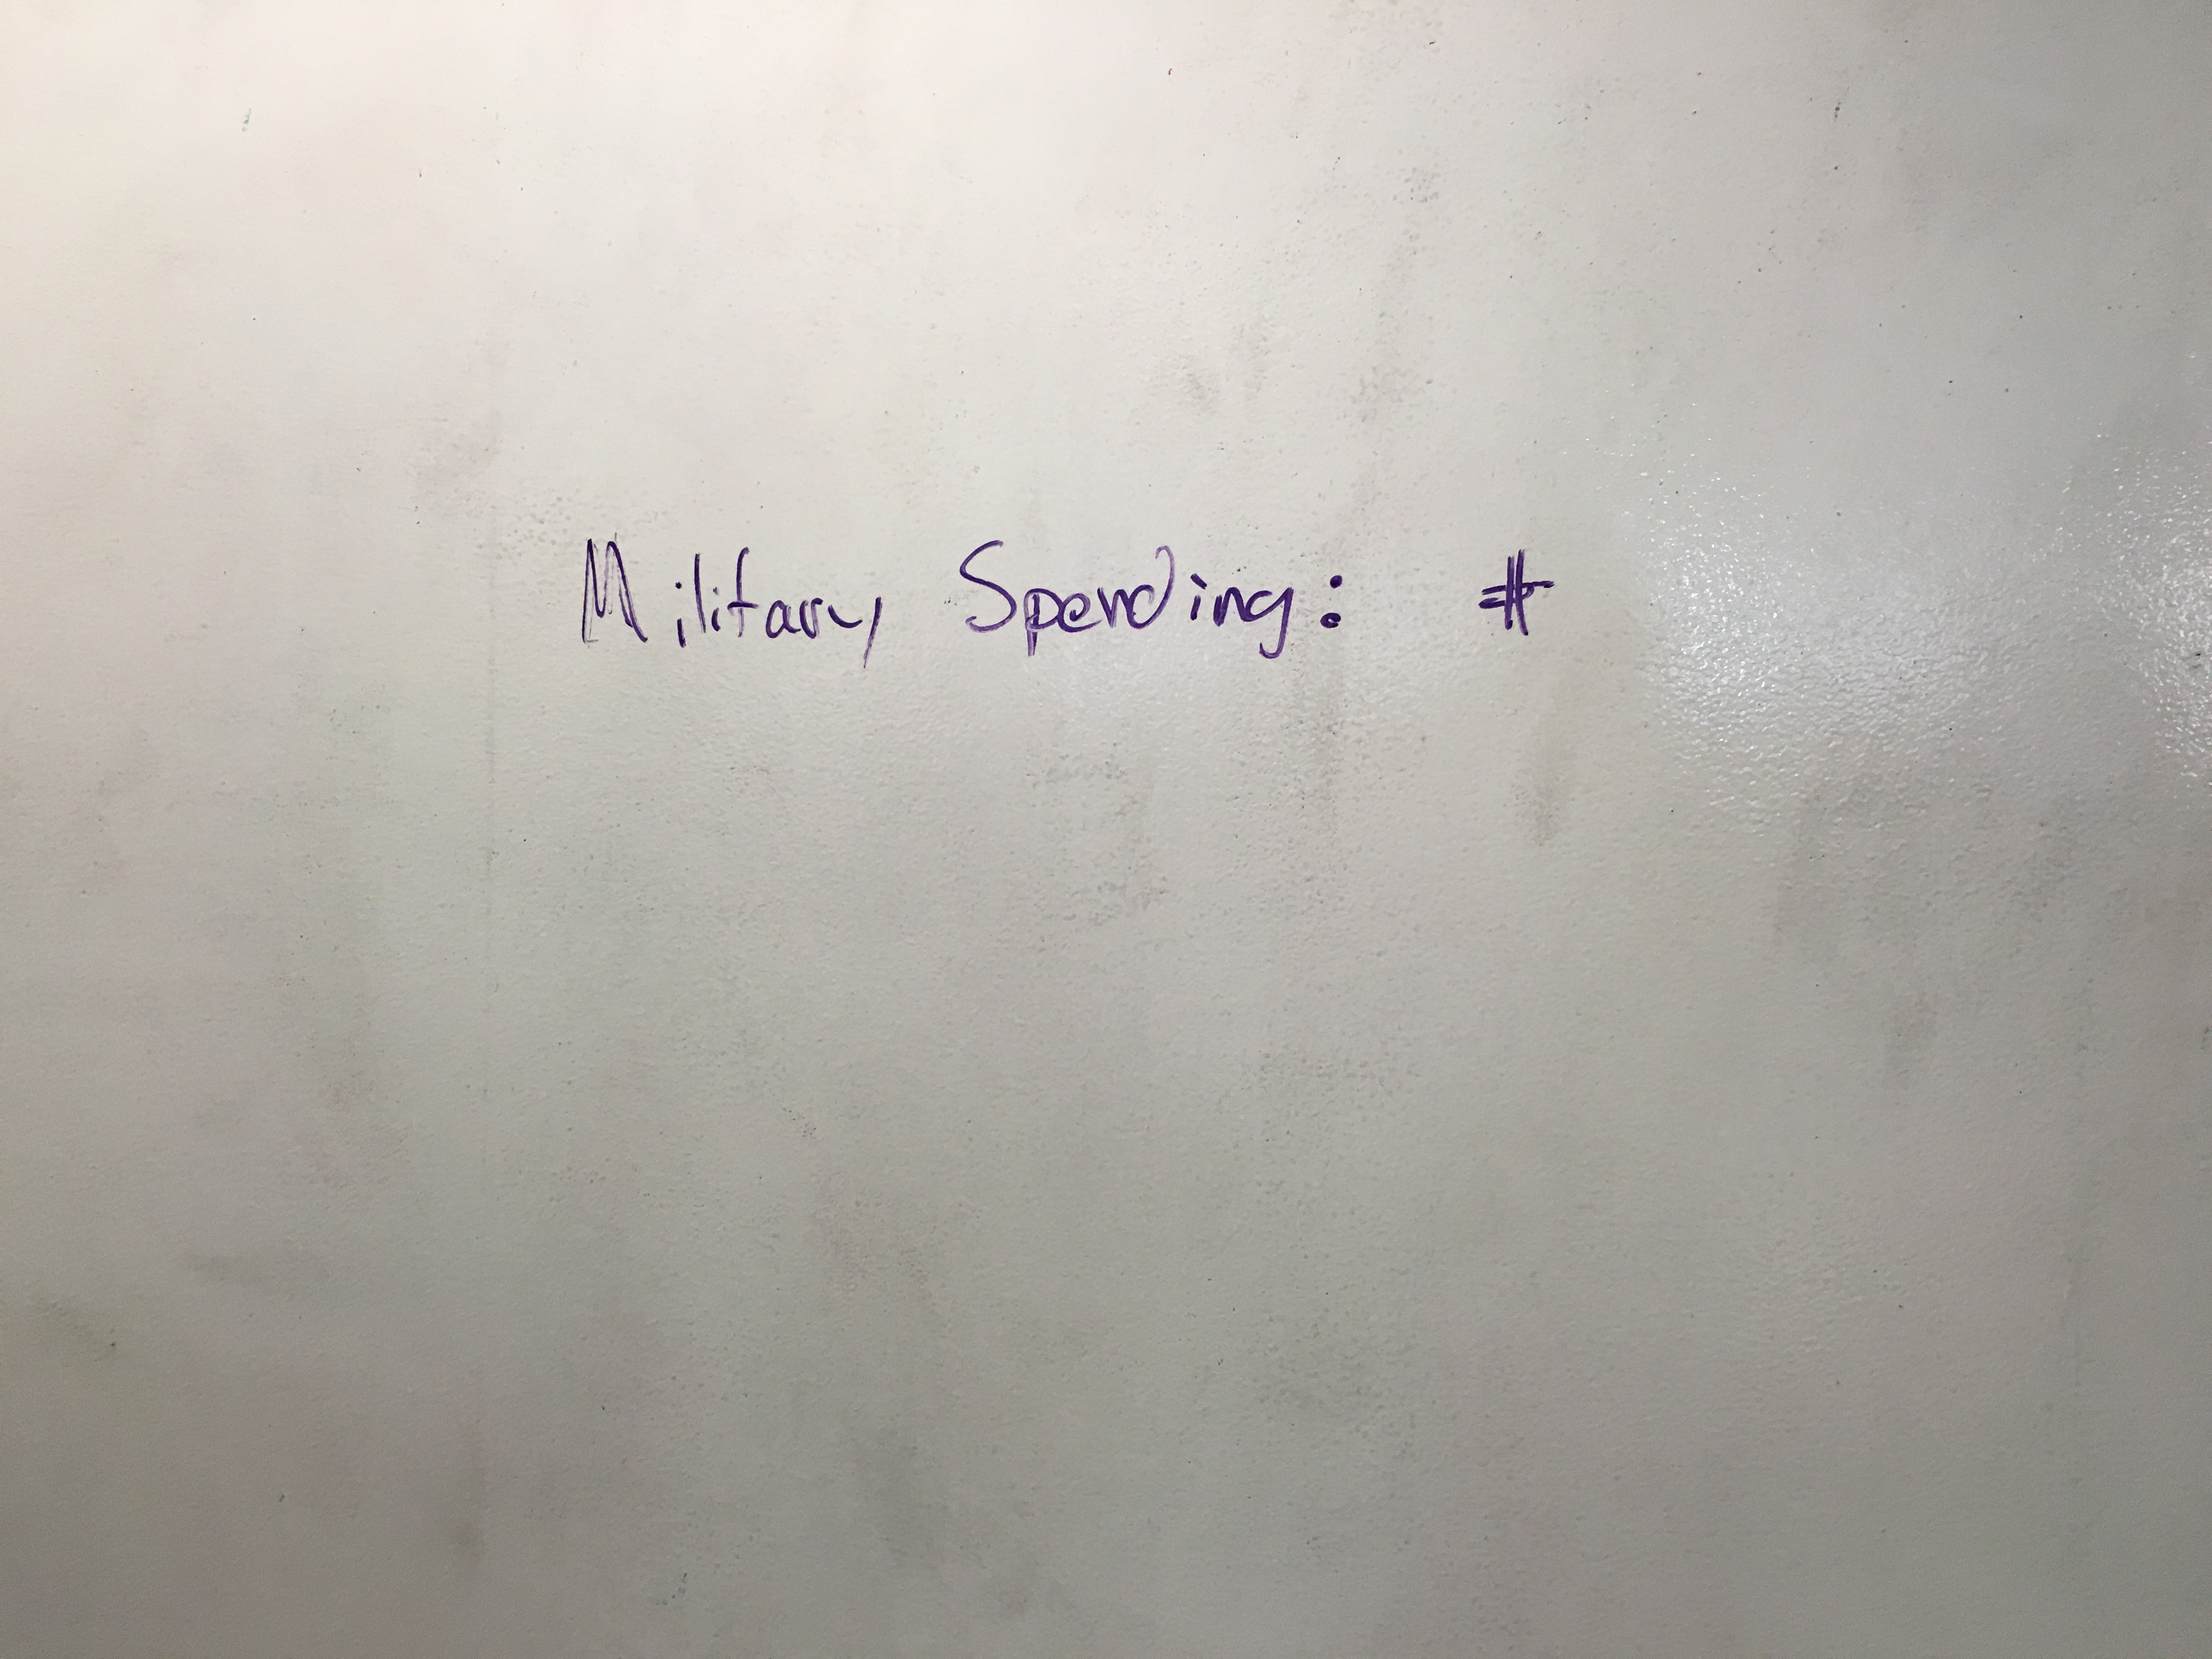 Military Spending: #